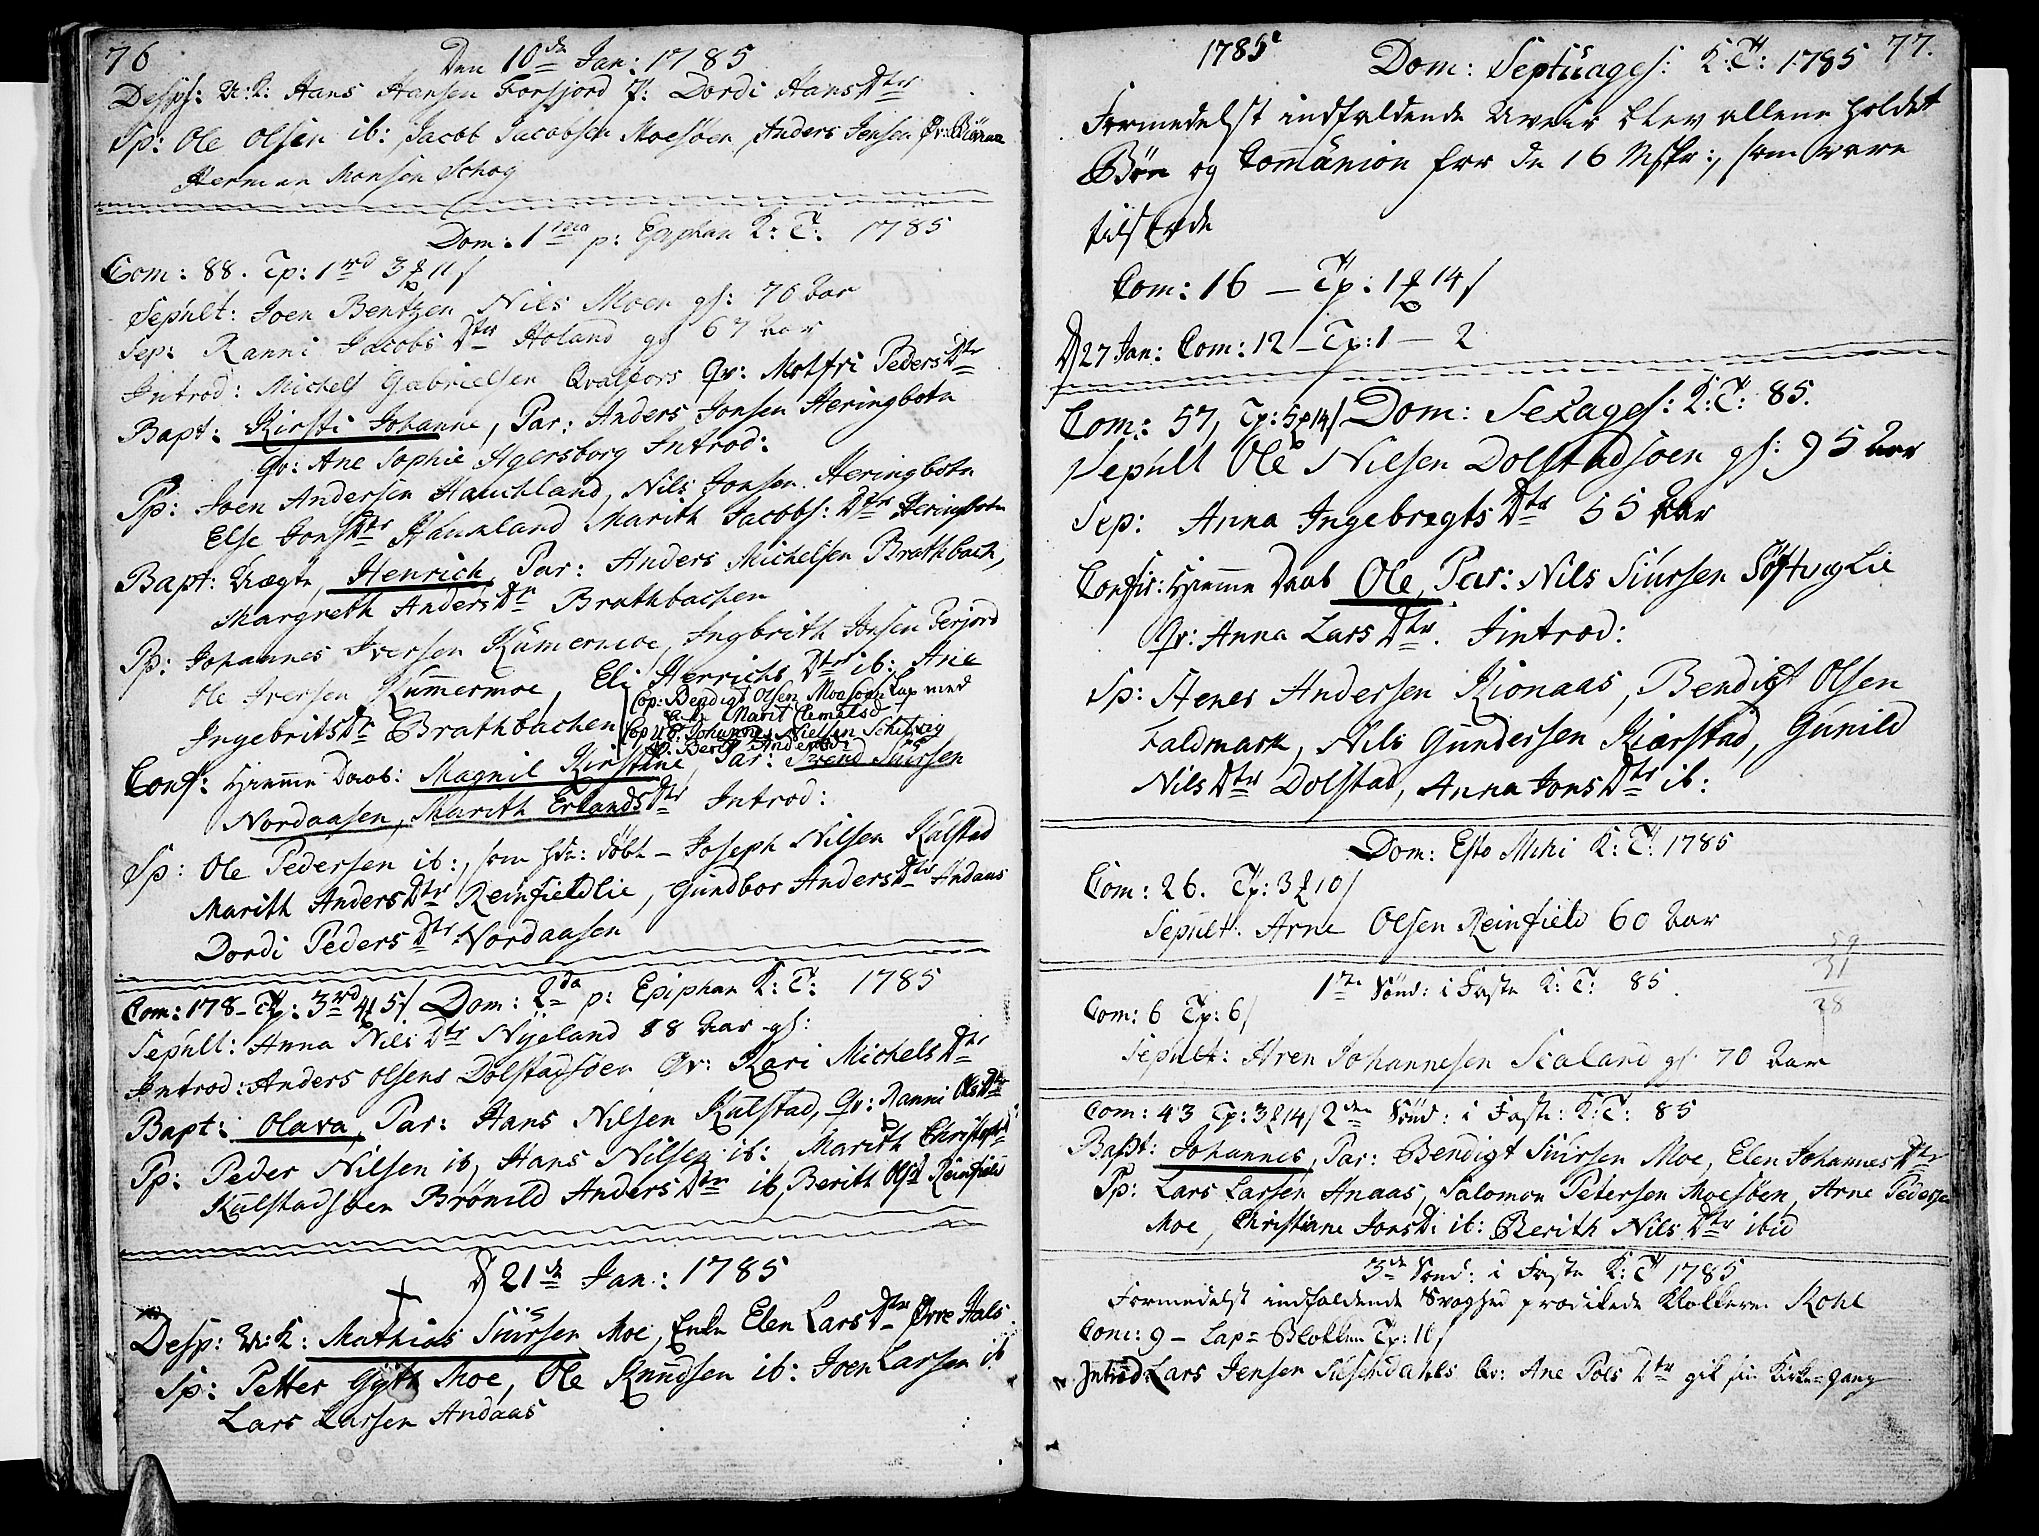 76
Den 10de Jan: 1785
Desps: U:K: Hans Hansen Forsjord P: Dordi HansDtr
Sp: Ole Olsen ib: Jacob Jacobsen Moesøen, Anders Jensen
Herman Monsen Schog
Dom: 1ma p: Epiphan K: T: 1785
Com: 88. Tp: 1rd 3 11s
Sepult: Joen Bentzen Nils Moen gl: 70 Aar
Sep: Ranni Jacobs Dtr Holand gl 67 Aar
Introd: Michels Gabrielsen Qvalfors Qv: Metfri Peders Dtr
Bapt: Kirsti Johanne, Par: Anders Jonsen Heringbotn
Qv: Ane Sophie Agersborg Introd:
Pp: Joen Andersen Hauchland, Nils Jonsen Heringbotn
Else JonsDtr Hauchland Marith Jacobs: Dtr Heringbotn
Bapt: Uægte, Henrich Par: Anders Michelsen Brathbach,
Margreth AndersDtr Brathbachen
Pp: Johannes Iversen Kumermoe, Ingbrith Jonsen Perjord
Ole Iversen Kummermoe, Eli Henrichs Dtr ib: Ane
IngebritsDtr Brathbachen
Cop: Bendigt Olsen Moesøen Lap med
Marit Clemetsd
Cop: Johannes Nielsen Schitvig
Berit Andersd:
Conf: Hiemme Daab: Magnil Kirstine, Par: Svend Siursen
Nordaasen, Marith ErlandsDtr Introd:
Sp: Ole Pedersen ib:, som hde: døbt - Joseph Nilsen Kulstad
Marith AndersDtr Reinfieldlie, Gundbor AndersDtr Andaas
Dordi Peders Dtr Nordaasen
Com: 178 - Tp: 3rd 4 5s Dom: 2da p: Epiphan K: T: 1785
Sepult: Anna Nils Dtr Nyeland 88 Aar gl:
Introd: Anders Olsens Dolstadsøen Qv: Kari Michels Dtr
Bapt: Olava, Par: Hans Nilsen Kulstad, Qv: Ranni OlsDtr
Pp: Peder Nilsen ib, Hans Nilsen ib: Marith
Kulstadsøen Brønild Anders Dtr ib, Berith Olsd Reinfield
D 21de Jan: 1785
Desp: U: K: Mathias Siursen Moe, Enke Elen Lars Dtr Øvre Hals
Sp: Petter Gyth Moe, Ole Knudsen ib: Joen Larsen ib
Lars Larsen Andaas
1785
Dom: Septuages: K: T: 1785
77.
Formedelst indfaldende Uveir blev allene holdet
Bøn og Communion for de 16 Mskr:, som vare
tilstæde
Com: 16 - Tp: 1 14s
D 27 Jan: Com: 12 - Tp: 1 - 2
Com: 57, Tp: 5 14s Dom: Sexages: K: T: 85.
Sepult Ole Nilsen Dolstadsøen gl: 95 Aar
Sep: Anna Ingebregts Dtr 55 Aar
Confir: Hiemme Daab Ole, Par: Nils Siursen Lie
Qv: Anna Lars Dtr. Introd:
Sp: Henes Andersen Kionaas, Bendigt Olsen
Faldmark, Nils Gundersen Kiærstad, Gunild
Nils Dtr Dolstad, Anna Jons Dtr ib:
Dom: Esto Mihi K: T: 1785
Com: 26. Tp: 3 10s
Sepult: Arne Olsen Reinfield 60 Aar
59
31
28
1te Sønd: i Faste K: T: 85.
Com: 6 Tp: 6s
Sepult: Aren Johannesen Scaland gl: 70 Aar
Com: 43 Tp: 3 14s 2den Sønd: i Faste: K: T: 85
Bapt: Johannes, Par: Bendigt Siursen Moe, Elen Johannes Dtr
Pp: Lars Larsen Anaas, Salomon Petersen Moesøen, Arne Pedersen
Moe, Christiane JonsD ib: Berith Nils Dtr ibid
3de Sønd: i Faste K: T 1785
Formedelst indfaldende Svaghed prædikede Klokkeren Rohl
Com: 9 - Lap= Blokken Tp: 11s
Introd: Lars Jensen Qv: Ane Pols Dtr gik sin Kirke=gang